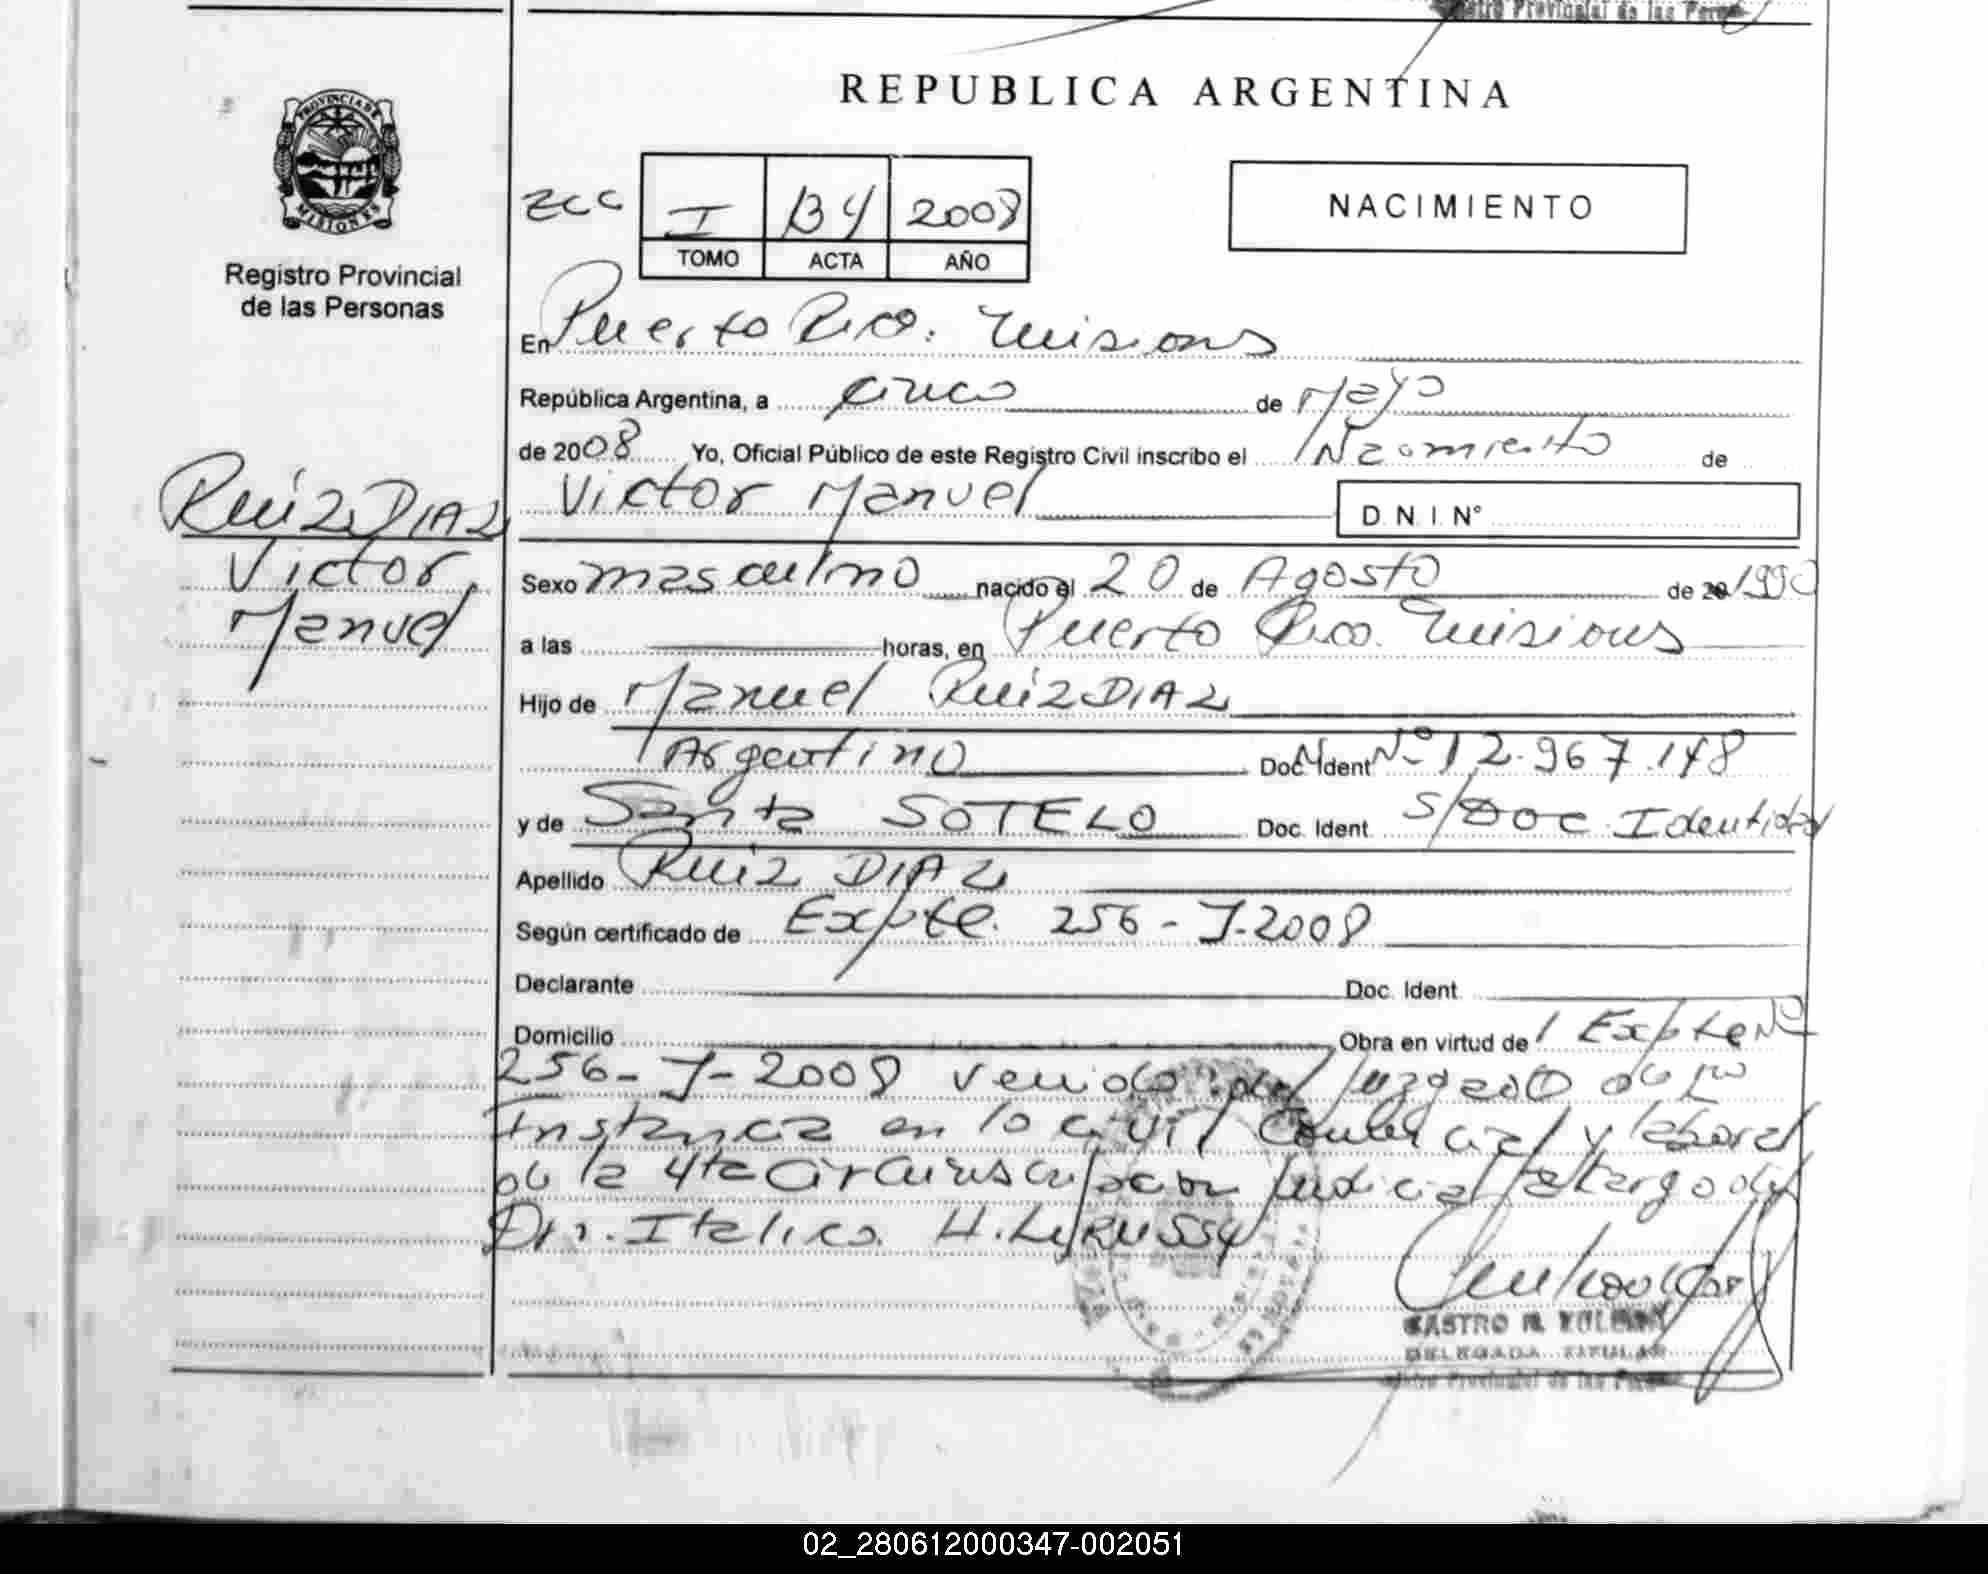 REPUBLICA ARGENTINA
PROVINCIA DE
MISIONES
Registro Provincial
de las Personas
I 134 2008
TOMO ACTA AÑO
NACIMIENTO
En Puerto Rico. Misiones
República Argentina, a cinco de Mayo
de 2008 Yo, Oficial Público de este Registro Civil inscribo el Nacimiento de
Victor Manuel D.N.I. N°
Ruiz DIAZ
Victor
Manuel
Sexo masculino nacido el 20 de Agosto de 1990
a las horas, en Puerto Rico. Misiones
Hijo de Manuel Ruiz DIAZ
Argentino Doc. Ident N° 12.967.148
y de Santa SOTELO Doc. Ident S/Doc. Identidad
Apellido Ruiz DIAZ
Según certificado de Expte. 256-J-2008
Declarante Doc. Ident
Domicilio Obra en virtud de Expte N°
256-J-2008 venido del Juzgado de 1ra
Instancia en lo civil Comercial y laboral
de la 4ta Circunscripcion Judicial a cargo del
Dr. Italico H.
CASTRO
DELEGADA TITULAR
Provincial de las
02_280612000347-002051